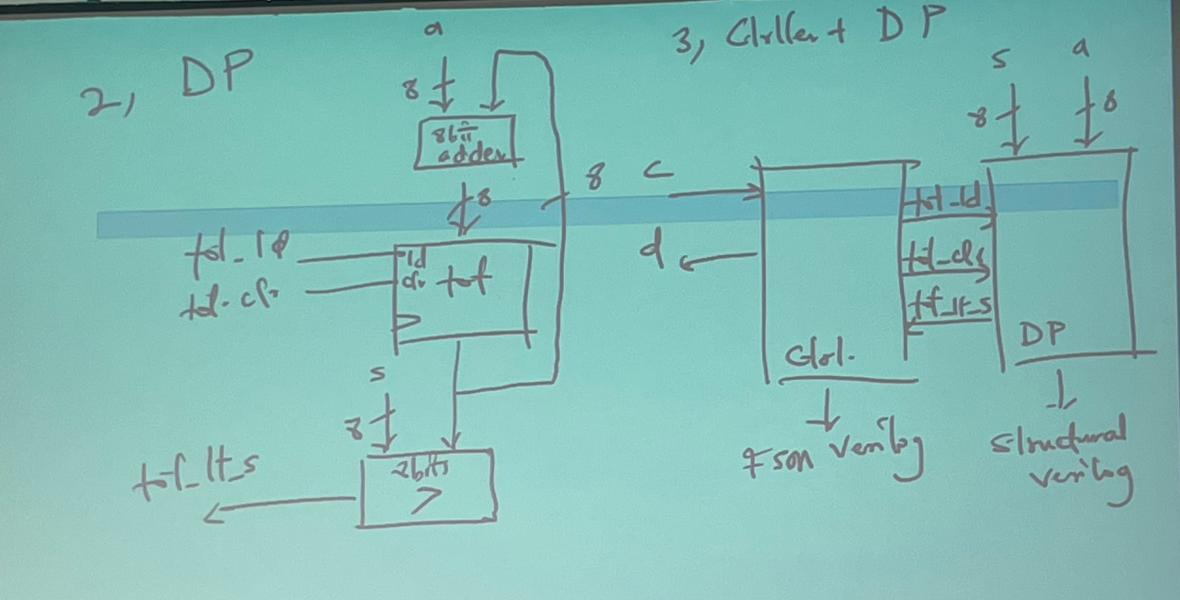 2, DP
a
8
8bit
adder
8
8
tot_ld
tot_clr
ld
clr
tot
s
8
8bits
>
tot_lt_s
3, Ctrller + DP
s
a
8
8
c
d
tot_ld
tot_clr
tot_lt_s
Ctrl.
DP
FSM Verilog
Structural
verilog